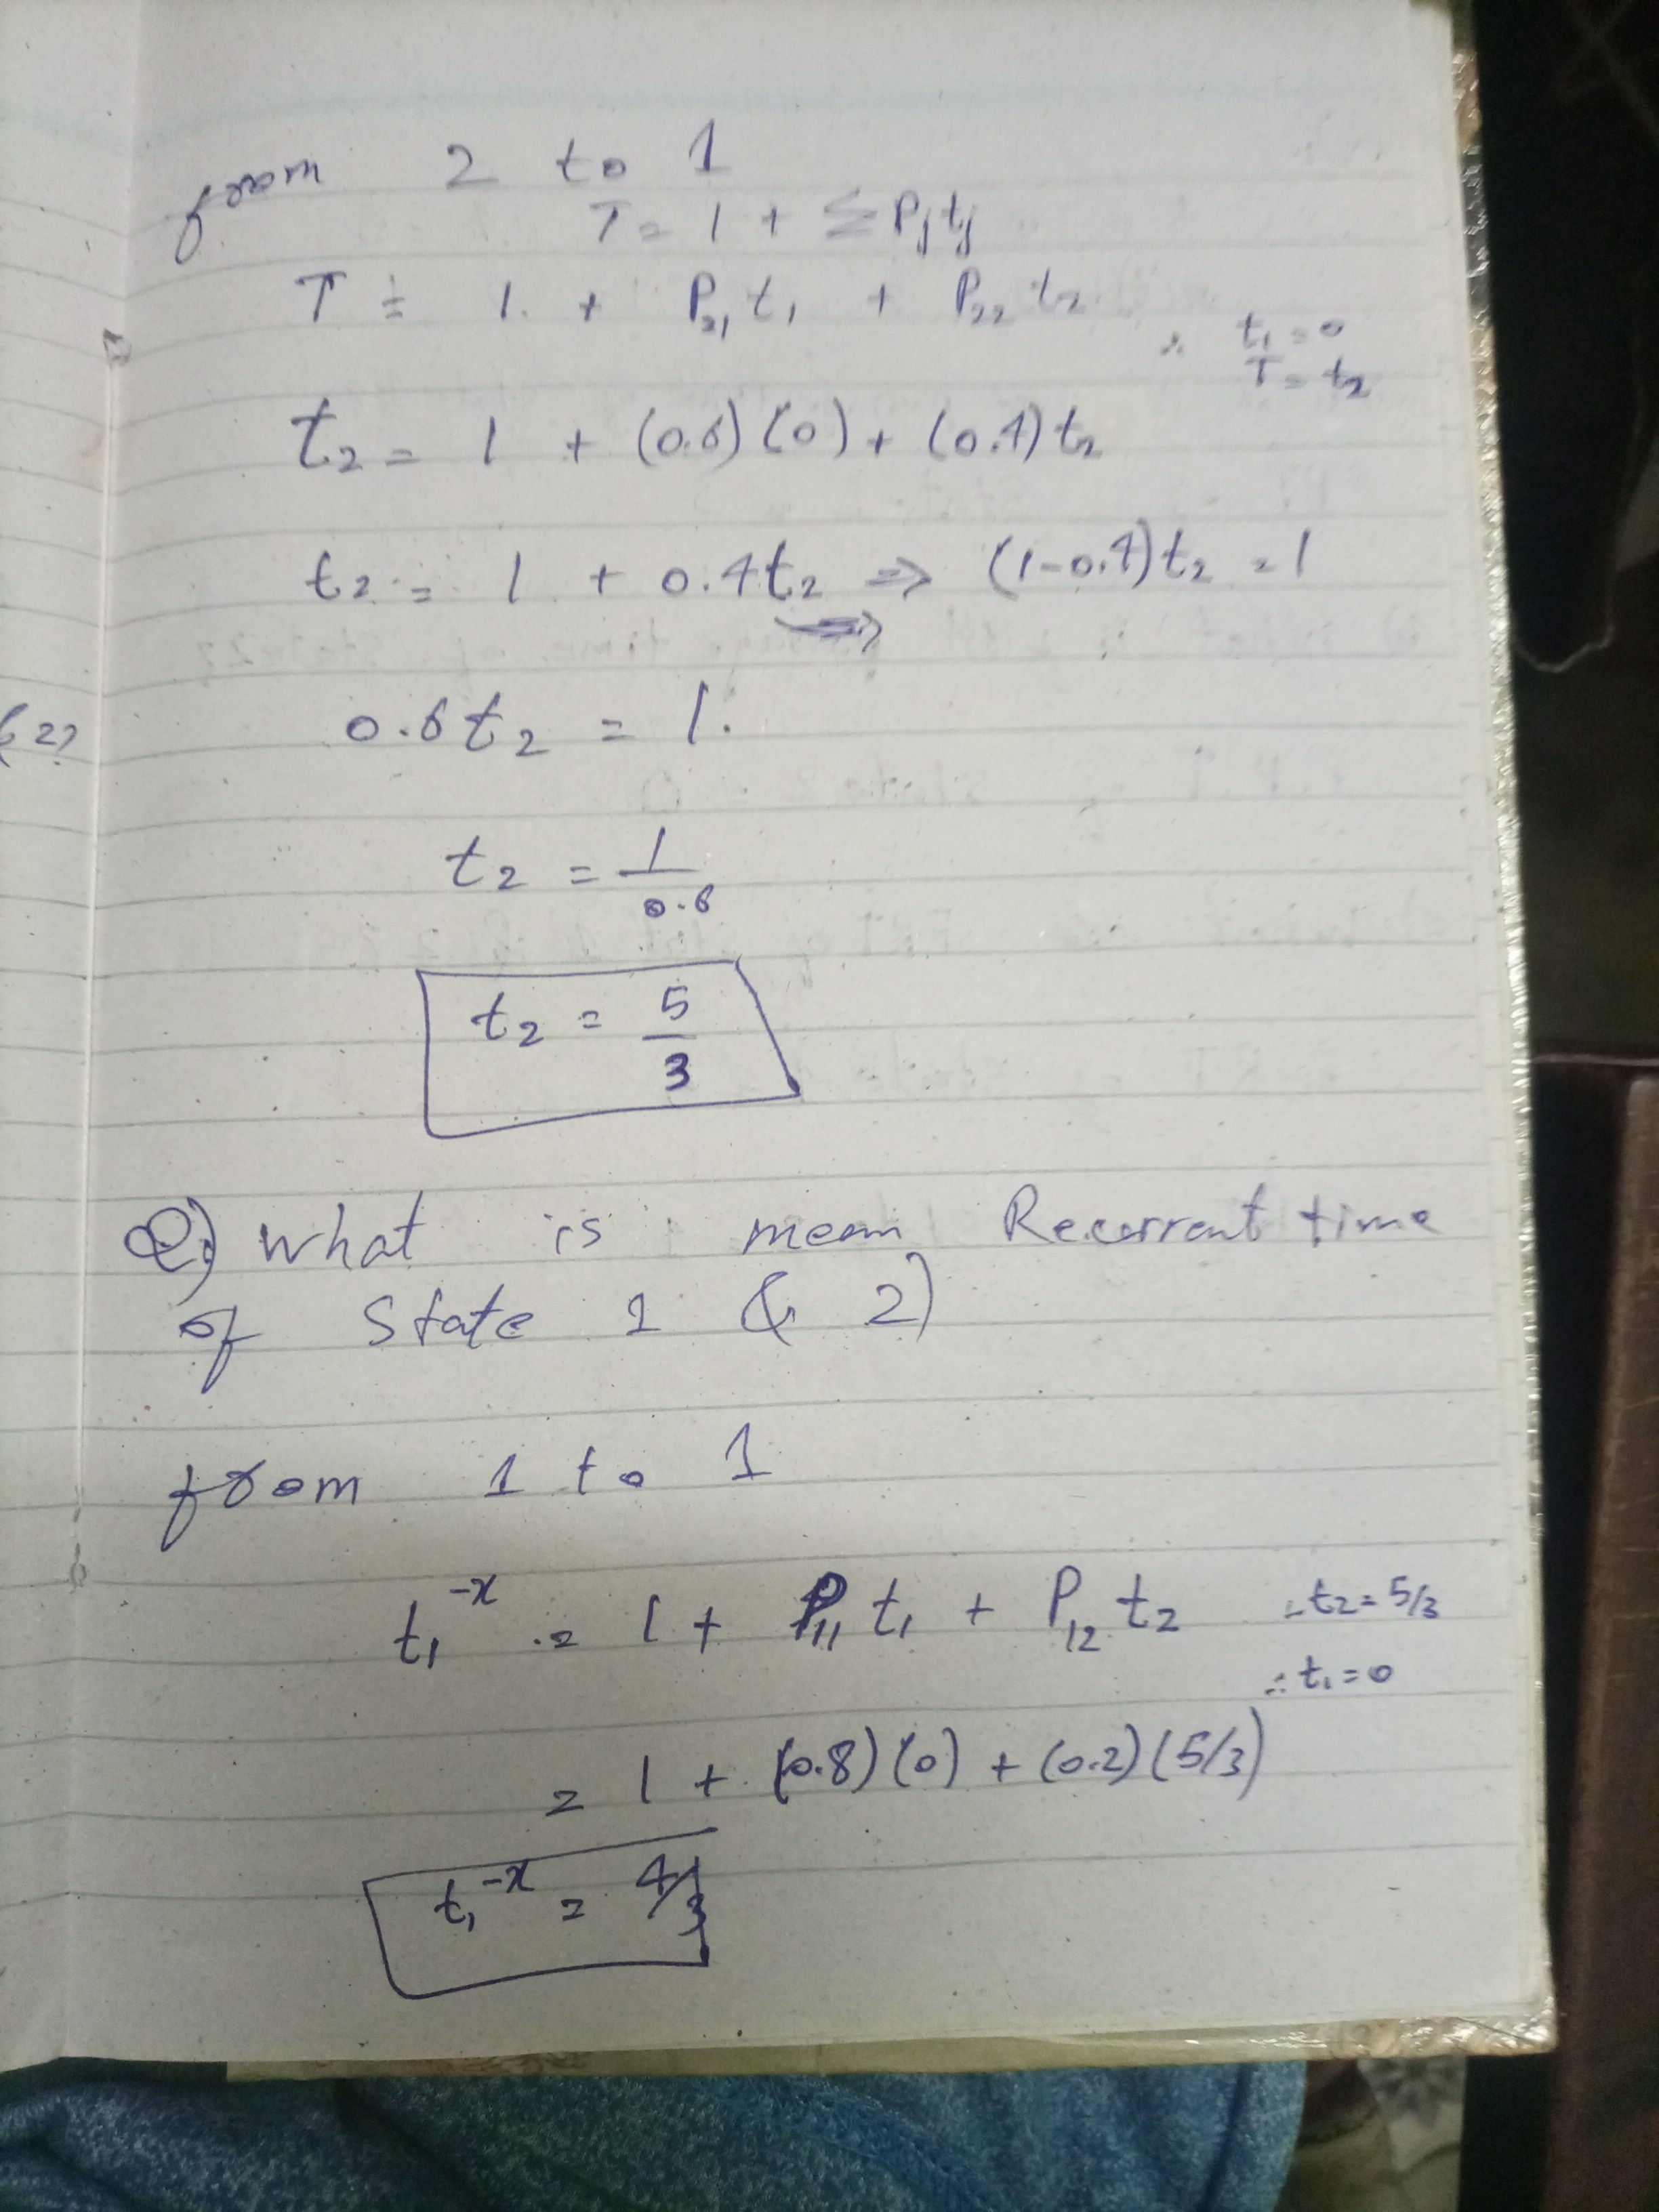 from 2 to 1
T = 1 + Σ Pj tj
T = 1 + P21 t1 + P22 t2
∴ t1 = 0
T = t2
t2 = 1 + (0.6)(0) + (0.4)t2
t2 = 1 + 0.4t2 ⇒ (1-0.4)t2 = 1
0.6t2 = 1.
t2 = 1/0.6
t2 = 5/3
Q) what is mean Recurrent time
of State 1 & 2)
from 1 to 1
t1^-x = 1 + P11 t1 + P12 t2 ∴ t2 = 5/3
∴ t1 = 0
= 1 + (0.8)(0) + (0.2)(5/3)
t1^-x = 4/3